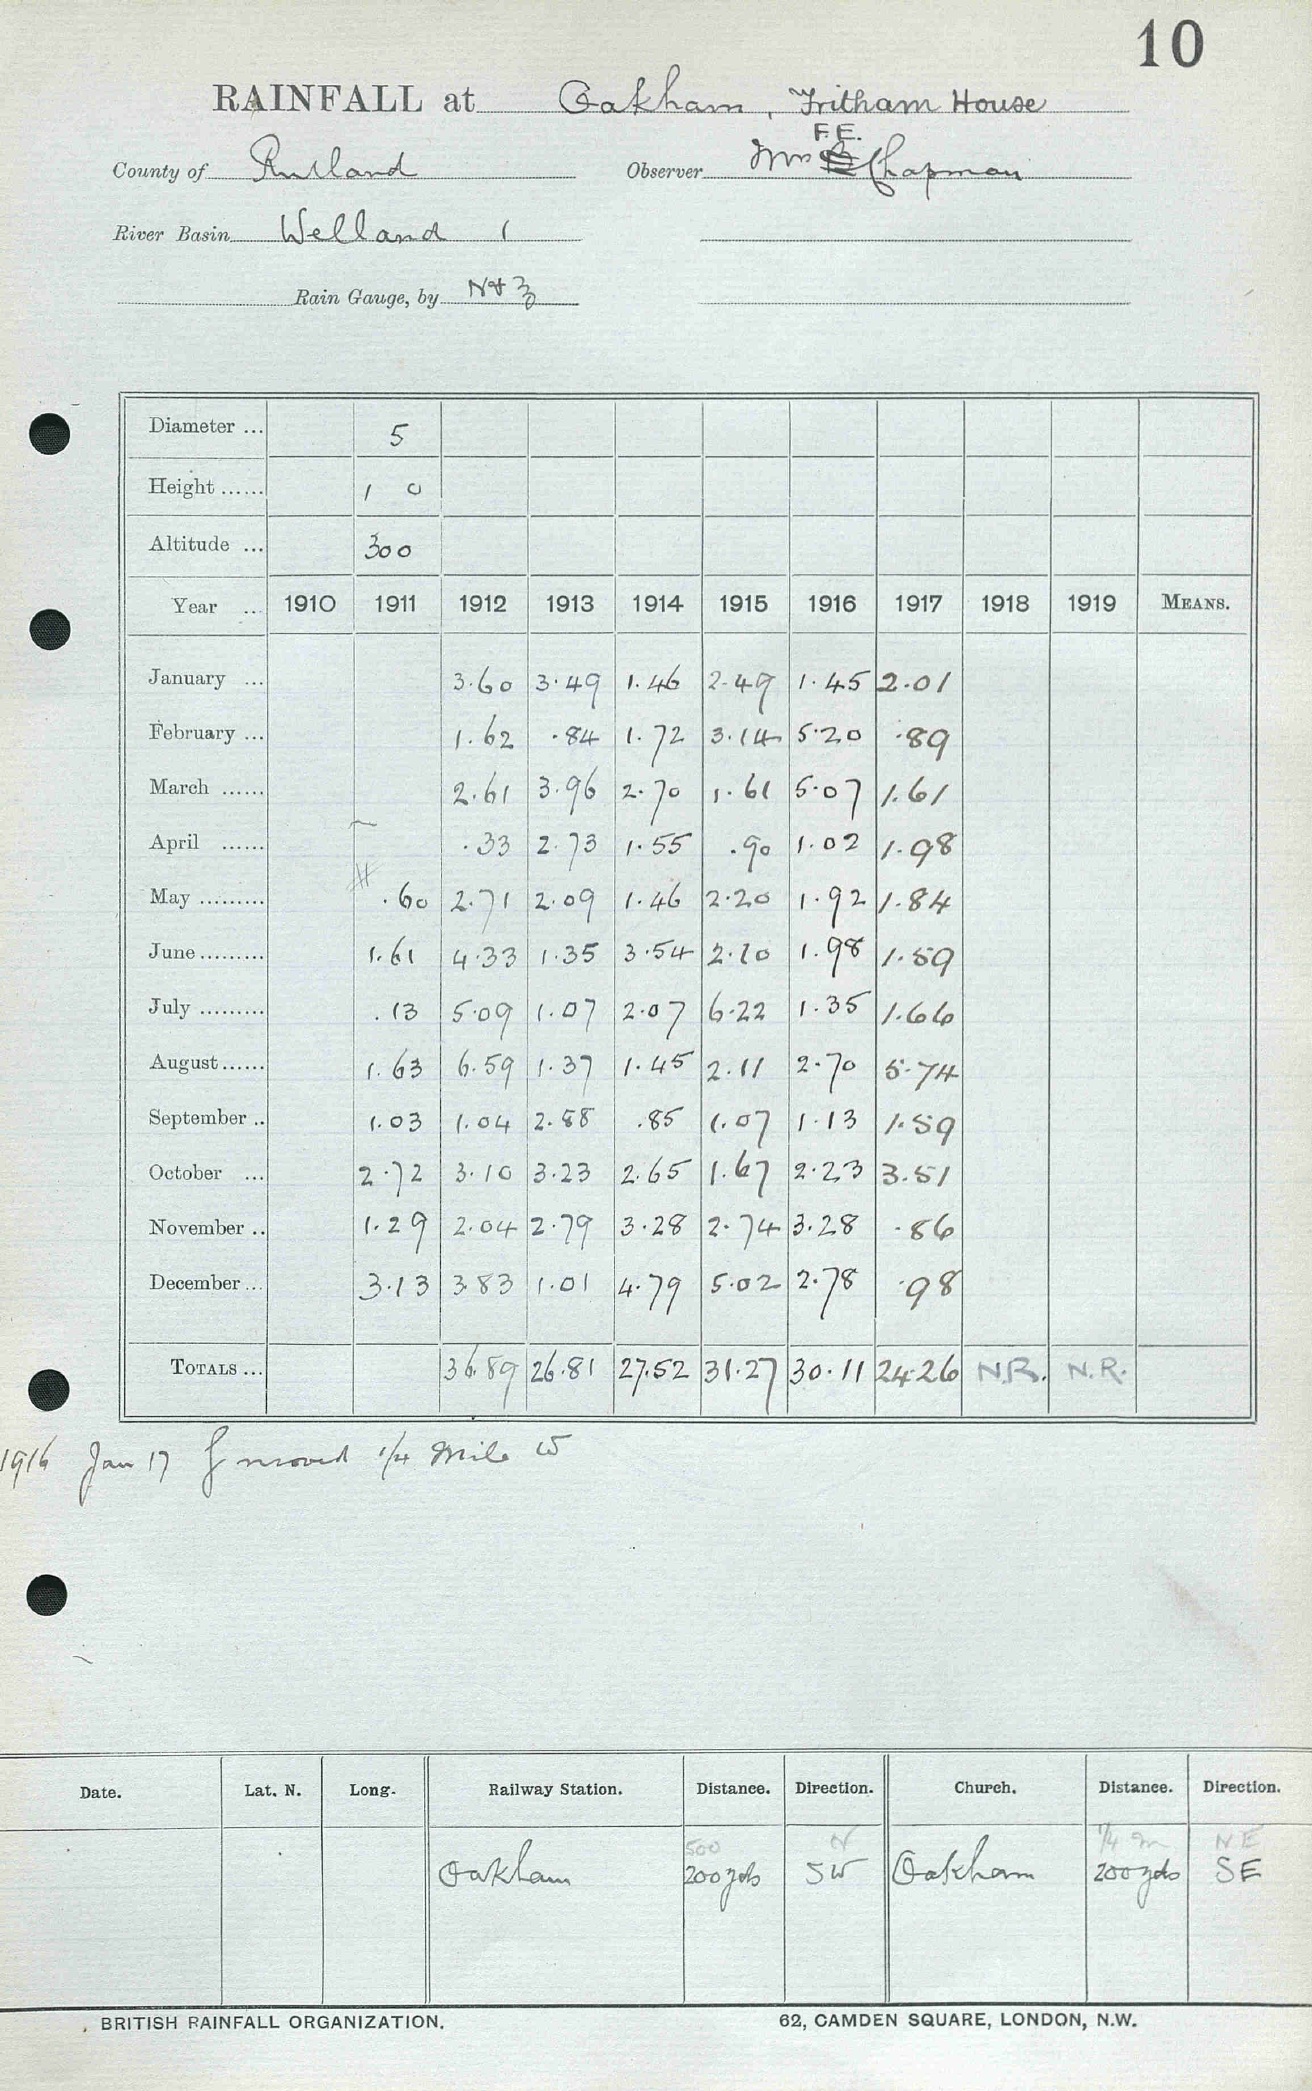 10
RAINFALL at Oakham, Fritham House
F.E.
County of Rutland Observer Mrs Chapman
River Basin Welland 1
Rain Gauge, by N & Z
Diameter ... 5
Height ...... 1 0
Altitude ... 300
Year .. 1910 1911 1912 1913 1914 1915 1916 1917 1918 1919 MEANS.
January ... 3.60 3.49 1.46 2.49 1.45 2.01
February ... 1.62 .84 1.72 3.14 5.20 .89
March ...... 2.61 3.96 2.70 1.61 5.07 1.61
April ...... .33 2.73 1.55 .90 1.02 1.98
May ......... .60 2.71 2.09 1.46 2.20 1.92 1.84
June ......... 1.61 4.33 1.35 3.54 2.10 1.98 1.59
July ......... .13 5.09 1.07 2.07 6.22 1.35 1.66
August ...... 1.63 6.59 1.37 1.45 2.11 2.70 5.74
September .. 1.03 1.04 2.88 .85 1.07 1.13 1.59
October ... 2.72 3.10 3.23 2.65 1.67 2.23 3.51
November .. 1.29 2.04 2.79 3.28 2.74 3.28 .86
December ... 3.13 3.83 1.01 4.79 5.02 2.78 .98
TOTALS ... 36.89 26.81 27.52 31.27 30.11 24.26 N.R. N.R.
1916 Jan 17 g moved 1/4 Mile W
Date. Lat. N. Long. Railway Station. Distance. Direction. Church. Distance. Direction.
500 N 1/4 m NE
Oakham 200 yds SW Oakham 200 yds SE
BRITISH RAINFALL ORGANIZATION. 62, CAMDEN SQUARE, LONDON, N.W.